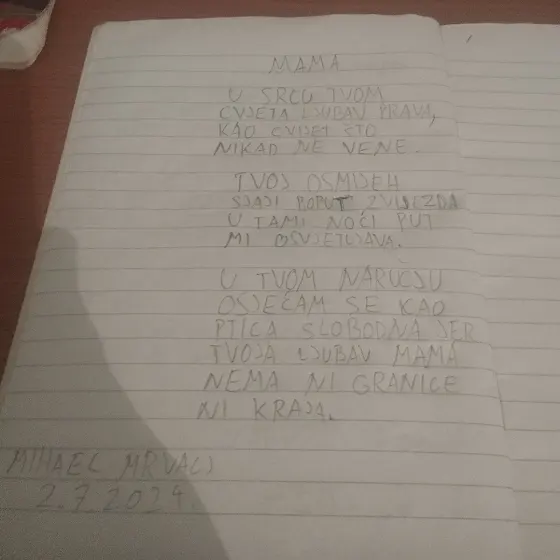 MAMA
U SRCU TVOM
CVJETA LJUBAV PRAVA,
KAO CVIJET ŠTO
NIKAD NE VENE.
TVOJ OSMIJEH
SJAJI POPUT ZVIJEZDA
U TAMI NOĆI PUT
MI OSVJETLJAVA.
U TVOM NARUČJU
OSJEĆAM SE KAO
PTICA SLOBODNA JER
TVOJA LJUBAV MAMA
NEMA NI GRANICE
NI KRAJA.
MIHAEL MRVALJ
2.7.2024.